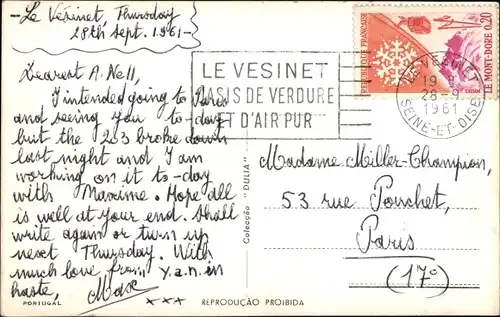 Le Vésinet, Thursday
28th Sept. 1961-
Dearest A. Nell,
I intended going to Paris
and seeing you to-day
but the 203 broke down
last night and I am
working on it to-day
with Maxime. Hope all
is well at your end. Shall
write again or turn up
next Thursday. With
much love from y.a.n. in
haste, Max
PORTUGAL
xxx
REPRODUÇÃO PROIBIDA
Colecção "DULIA"
LE VESINET
OASIS DE VERDURE
ET D'AIR PUR
REPUBLIQUE FRANÇAISE
LE MONT-DORE 0,20
LE VESINET
19 H
28-9
1961
SEINE-ET-OISE
Madame Miller-Champion,
53 rue Pouchet,
Paris
(17°)